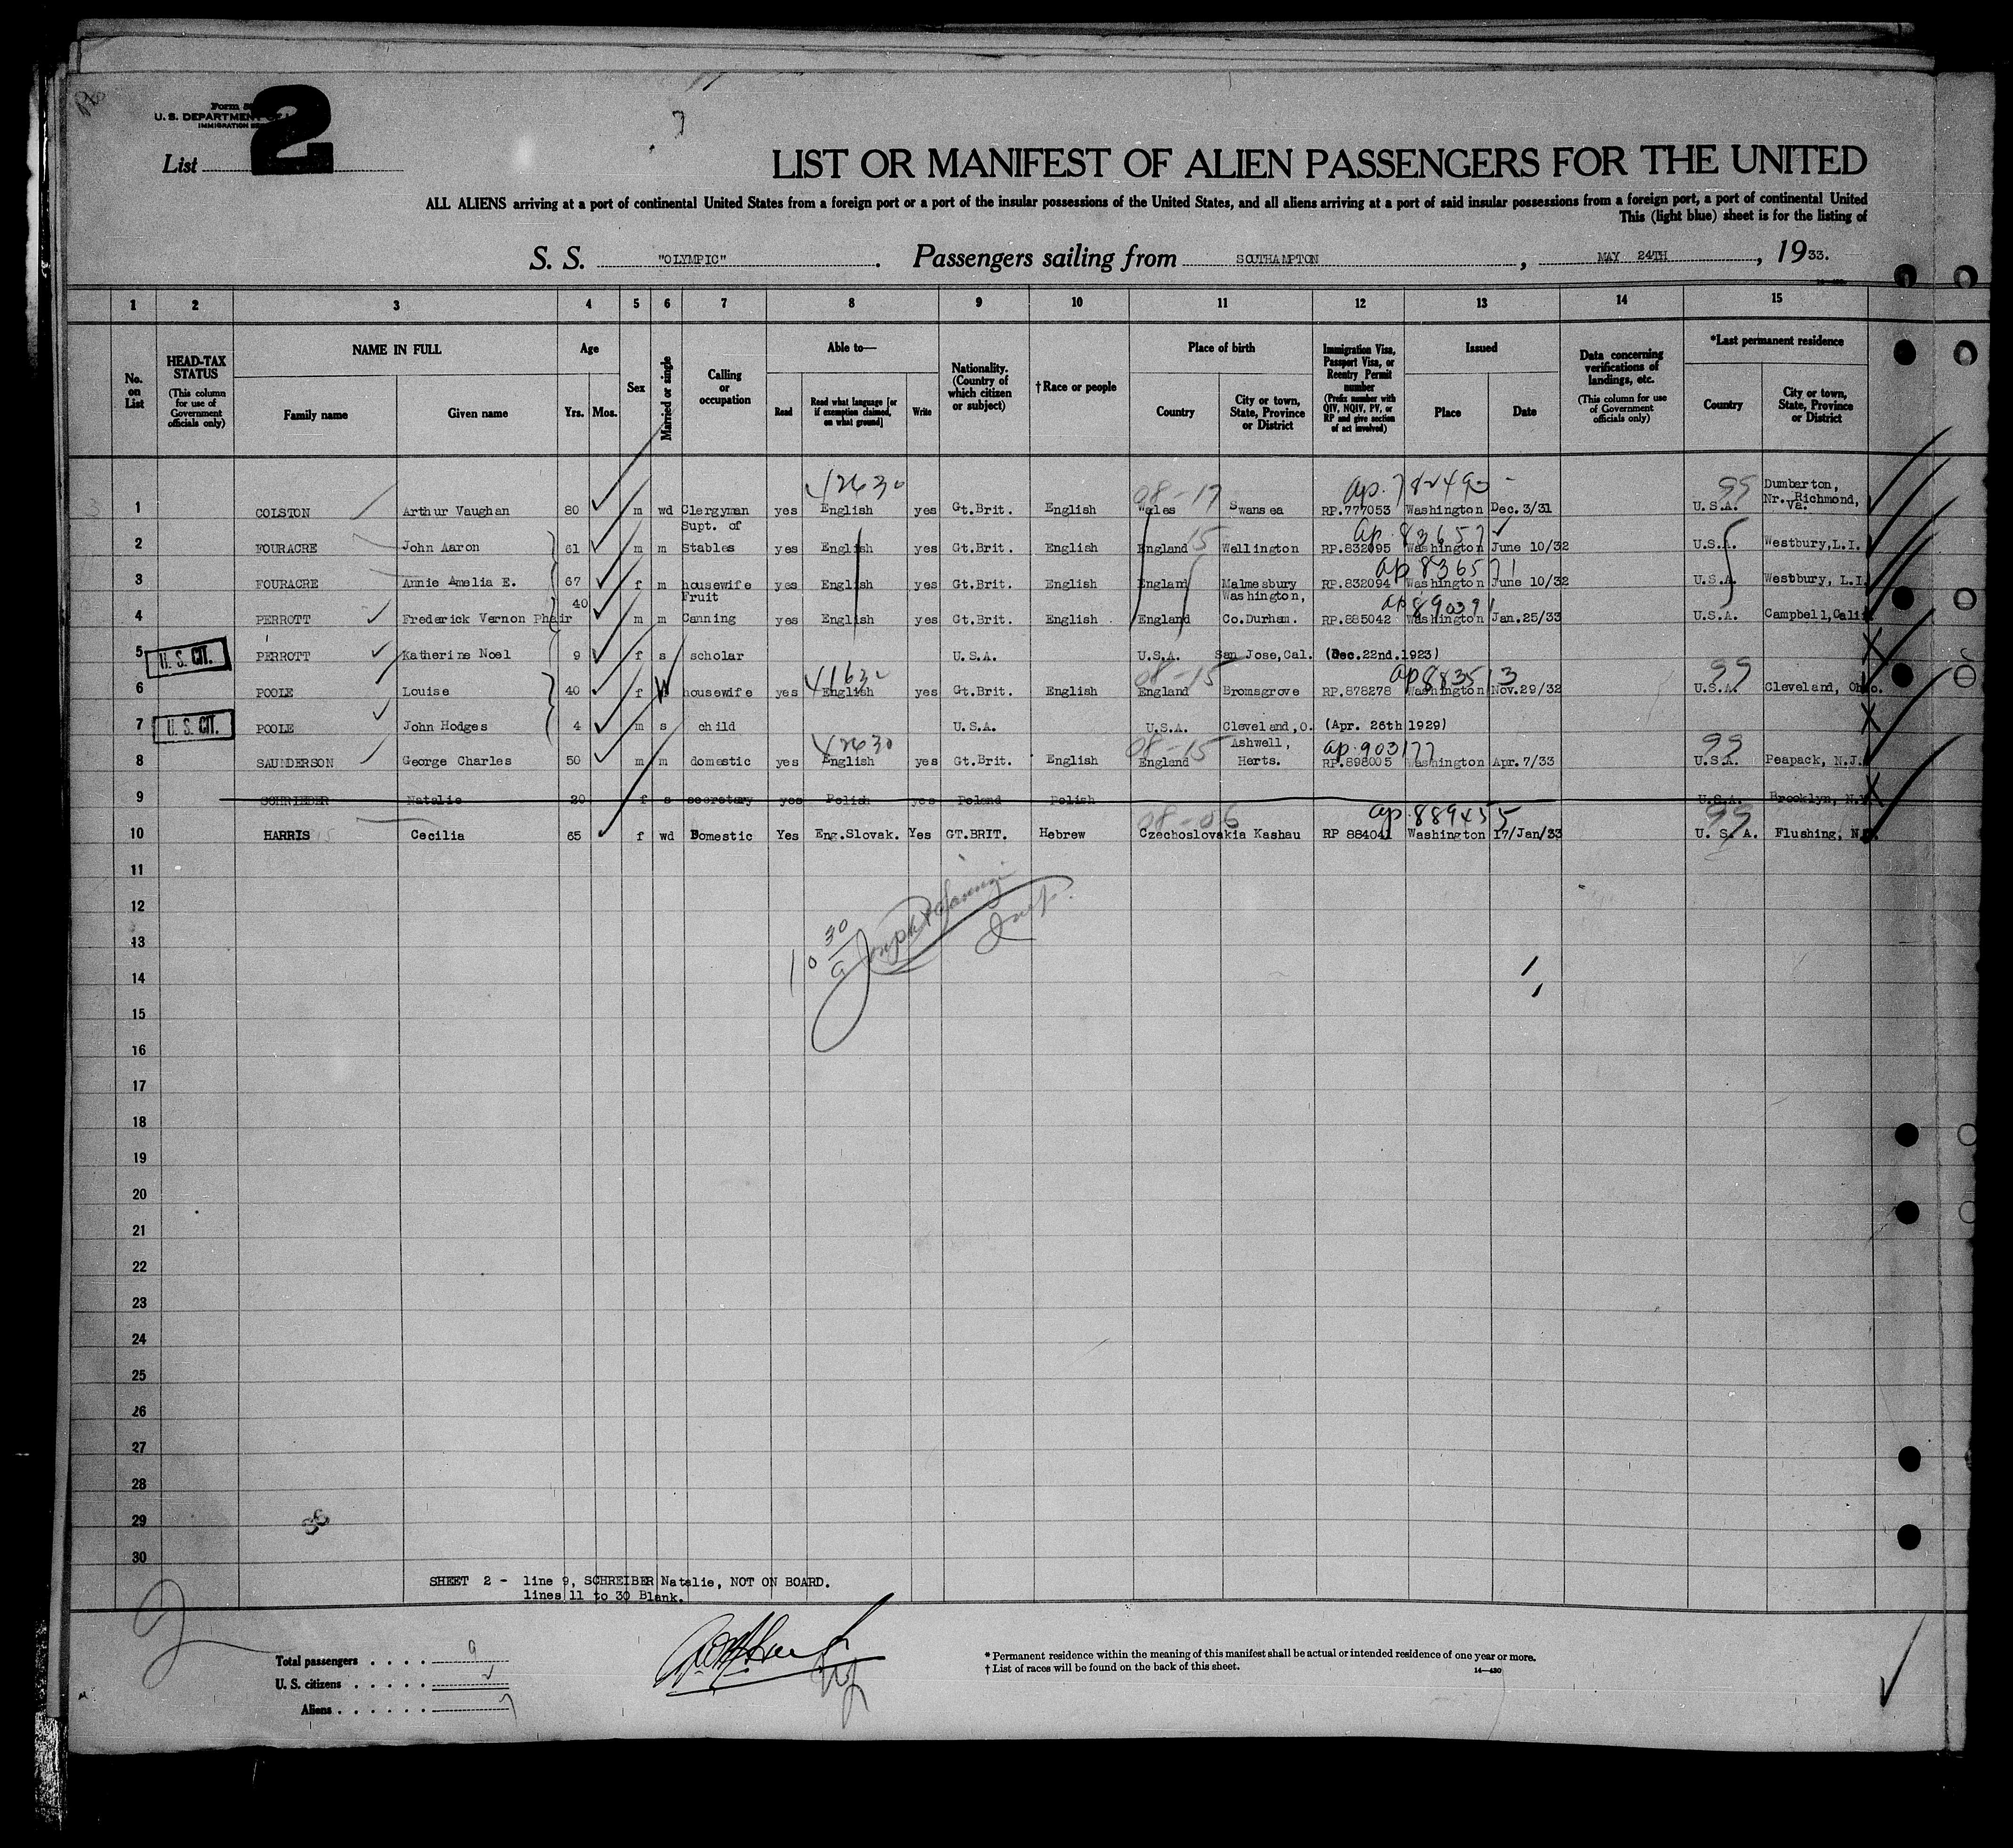 Form 50
U. S. DEPARTMENT
IMMIGRATION SE
2
List
LIST OR MANIFEST OF ALIEN PASSENGERS FOR THE UNITED
ALL ALIENS arriving at a port of continental United States from a foreign port or a port of the insular possessions of the United States, and all aliens arriving at a port of said insular possessions from a foreign port, a port of continental United
This (light blue) sheet is for the listing of
S. S. "OLYMPIC". Passengers sailing from SOUTHAMPTON, MAY 24TH, 1933.
1 2 3 4 5 6 7 8 9 10 11 12 13 14 15
No. on List
HEAD-TAX STATUS (This column for use of Government officials only)
NAME IN FULL Family name Given name
Age Yrs. Mos.
Sex
Married or single
Calling or occupation
Able to— Read Read what language [or if exemption claimed, on what ground] Write
Nationality. (Country of which citizen or subject)
†Race or people
Place of birth Country City or town, State, Province or District
Immigration Visa, Passport Visa, or Reentry Permit number (Prefix number with QIV, NQIV, PV, or RP and give section of act involved)
Issued Place Date
Data concerning verifications of landings, etc. (This column for use of Government officials only)
*Last permanent residence Country City or town, State, Province or District
42630 08-17 ap. 782490 99 Dumbarton,
1 COLSTON Arthur Vaughan 80 m wd Clergyman yes English yes Gt.Brit. English Wales Swansea RP.777053 Washington Dec.3/31 U.S.A. Nr. Richmond, Va.
Supt. of ap. 83657
2 FOURACRE John Aaron 61 m m Stables yes English yes Gt.Brit. English England 15 Wellington RP.832095 Washington June 10/32 U.S.A. Westbury,L.I.
ap 836571
3 FOURACRE Annie Amelia E. 67 f m housewife yes English yes Gt.Brit. English England Malmesbury RP.832094 Washington June 10/32 U.S.A. Westbury, L.I.
40 Fruit Washington, ap 890391
4 PERROTT Frederick Vernon Phair m m Canning yes English yes Gt.Brit. English England Co.Durham. RP.885042 Washington Jan.25/33 U.S.A. Campbell,Calif.
5 U. S. CIT. PERROTT Katherine Noel 9 f s scholar U.S.A. U.S.A. San Jose,Cal. (Dec.22nd.1923)
41630 08-15 ap 883513 99
6 POOLE Louise 40 f W housewife yes English yes Gt.Brit. English England Bromsgrove RP.878278 Washington Nov.29/32 U.S.A. Cleveland, Ohio.
7 U. S. CIT. POOLE John Hodges 4 m s child U.S.A. U.S.A. Cleveland,O. (Apr. 26th 1929)
42630 08-15 Ashwell, ap.903177 99
8 SAUNDERSON George Charles 50 m m domestic yes English yes Gt.Brit. English England Herts. RP.898005 Washington Apr.7/33 U.S.A. Peapack, N.J.
9 SCHRIEBER Natalie 20 f s secretary yes Polish yes Poland Polish U.S.A. Brooklyn, N.Y.
08-06 ap.889455 99
10 HARRIS Cecilia 65 f wd Domestic Yes Eng.Slovak. Yes GT.BRIT. Hebrew Czechoslovakia Kashau RP 884041 Washington 17/Jan/33 U. S. A. Flushing, N.Y.
11
12
13
14
15
16
17
18
19
20
21
22
23
24
25
26
27
28
29
30
SHEET 2 - line 9, SCHREIBER Natalie, NOT ON BOARD.
lines 11 to 30 Blank.
Total passengers . . . . 9
U. S. citizens . . . . .
Aliens . . . . . . 7
* Permanent residence within the meaning of this manifest shall be actual or intended residence of one year or more.
† List of races will be found on the back of this sheet. 14—430